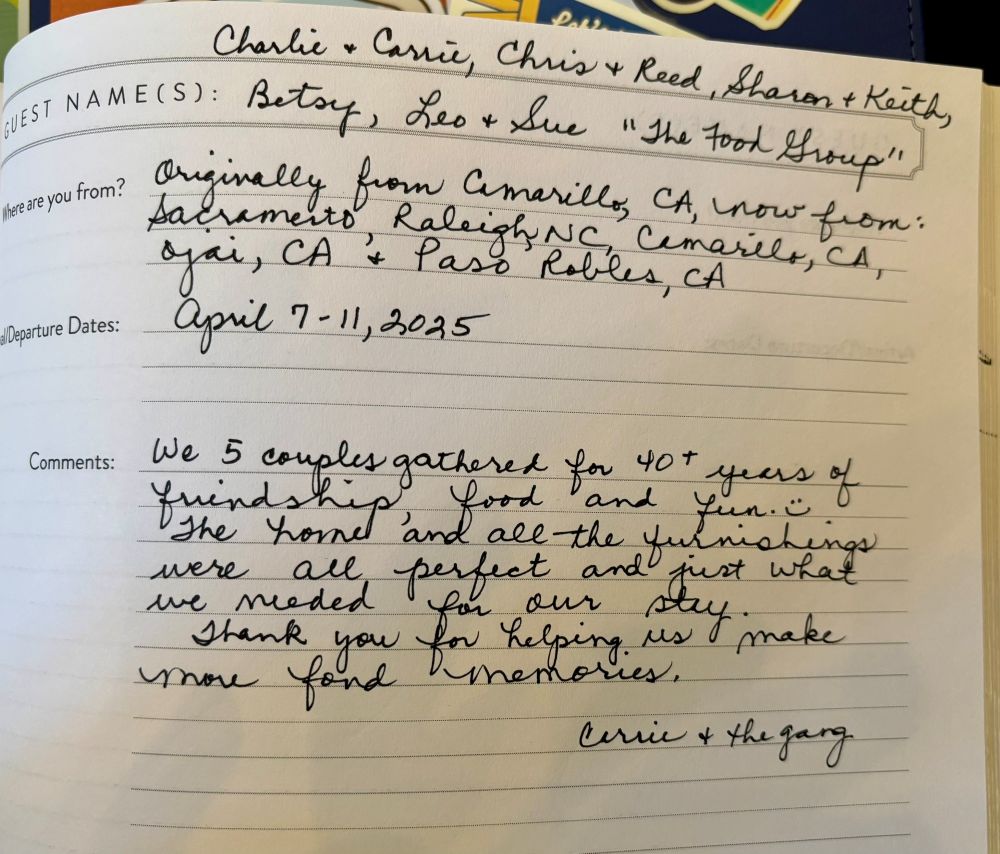 Charlie + Carrie, Chris + Reed, Sharon + Keith,
GUEST NAME(S): Betsy, Leo + Sue "The Food Group"
Where are you from? Originally from Camarillo, CA, now from:
Sacramento, Raleigh, NC, Camarillo, CA,
Ojai, CA + Paso Robles, CA
al/Departure Dates: April 7-11, 2025
Comments: We 5 couples gathered for 40+ years of
friendship, food and fun. :)
The home and all the furnishings
were all perfect and just what
we needed for our stay.
Thank you for helping us make
more fond memories.
Carrie + the gang